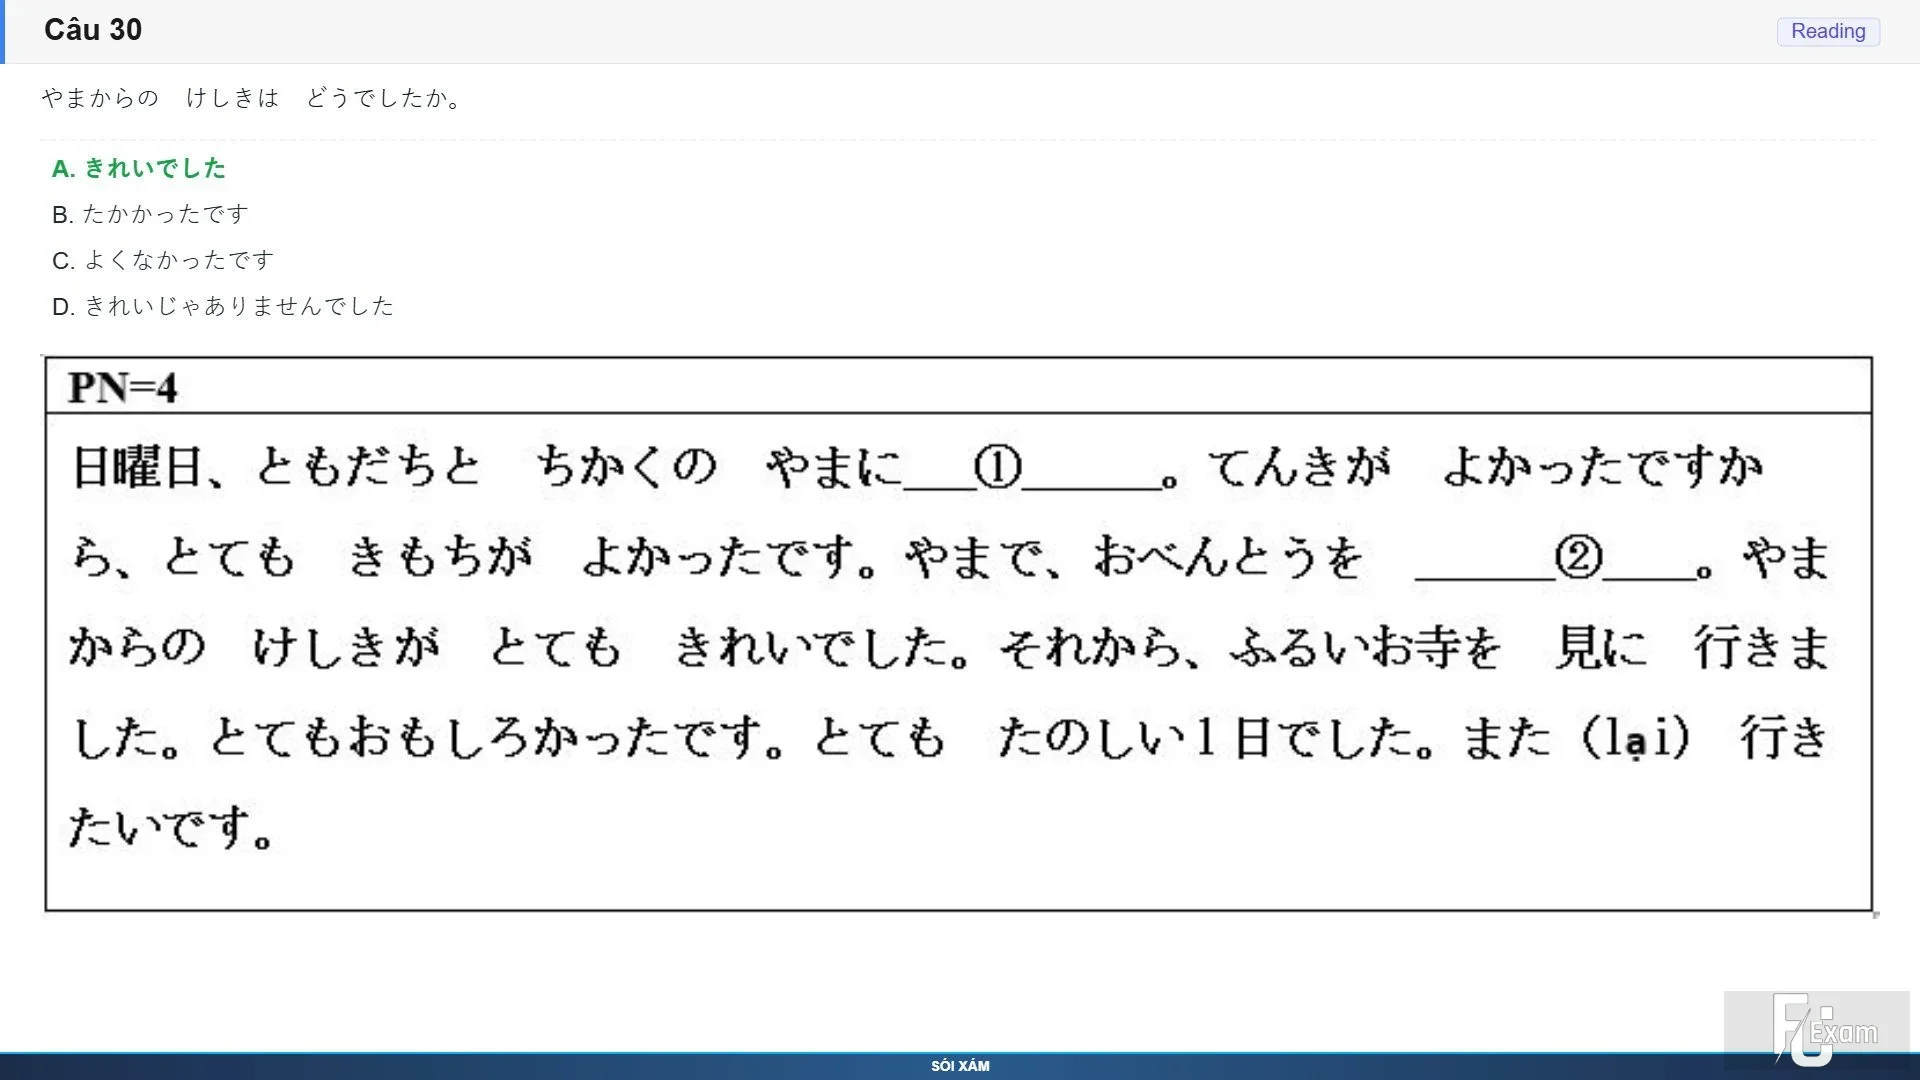 Câu 30
Reading
やまからの　けしきは　どうでしたか。
A. きれいでした
B. たかかったです
C. よくなかったです
D. きれいじゃありませんでした
PN=4
日曜日、ともだちと　ちかくの　やまに___①______。てんきが　よかったですか
ら、とても　きもちが　よかったです。やまで、おべんとうを　______②____。やま
からの　けしきが　とても　きれいでした。それから、ふるいお寺を　見に　行きま
した。とてもおもしろかったです。とても　たのしい１日でした。また（lại）　行き
たいです。
FU Exam
SÓI XÁM